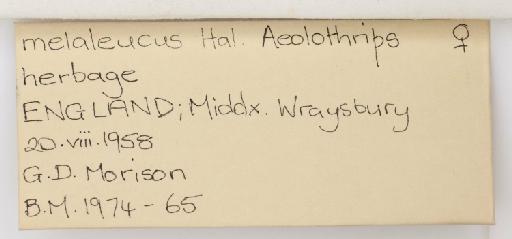 melaleucus Hal. Aeolothrips ♀
herbage
ENGLAND; Middx. Wraysbury
20.viii.1958
G.D. Morison
B.M. 1974-65